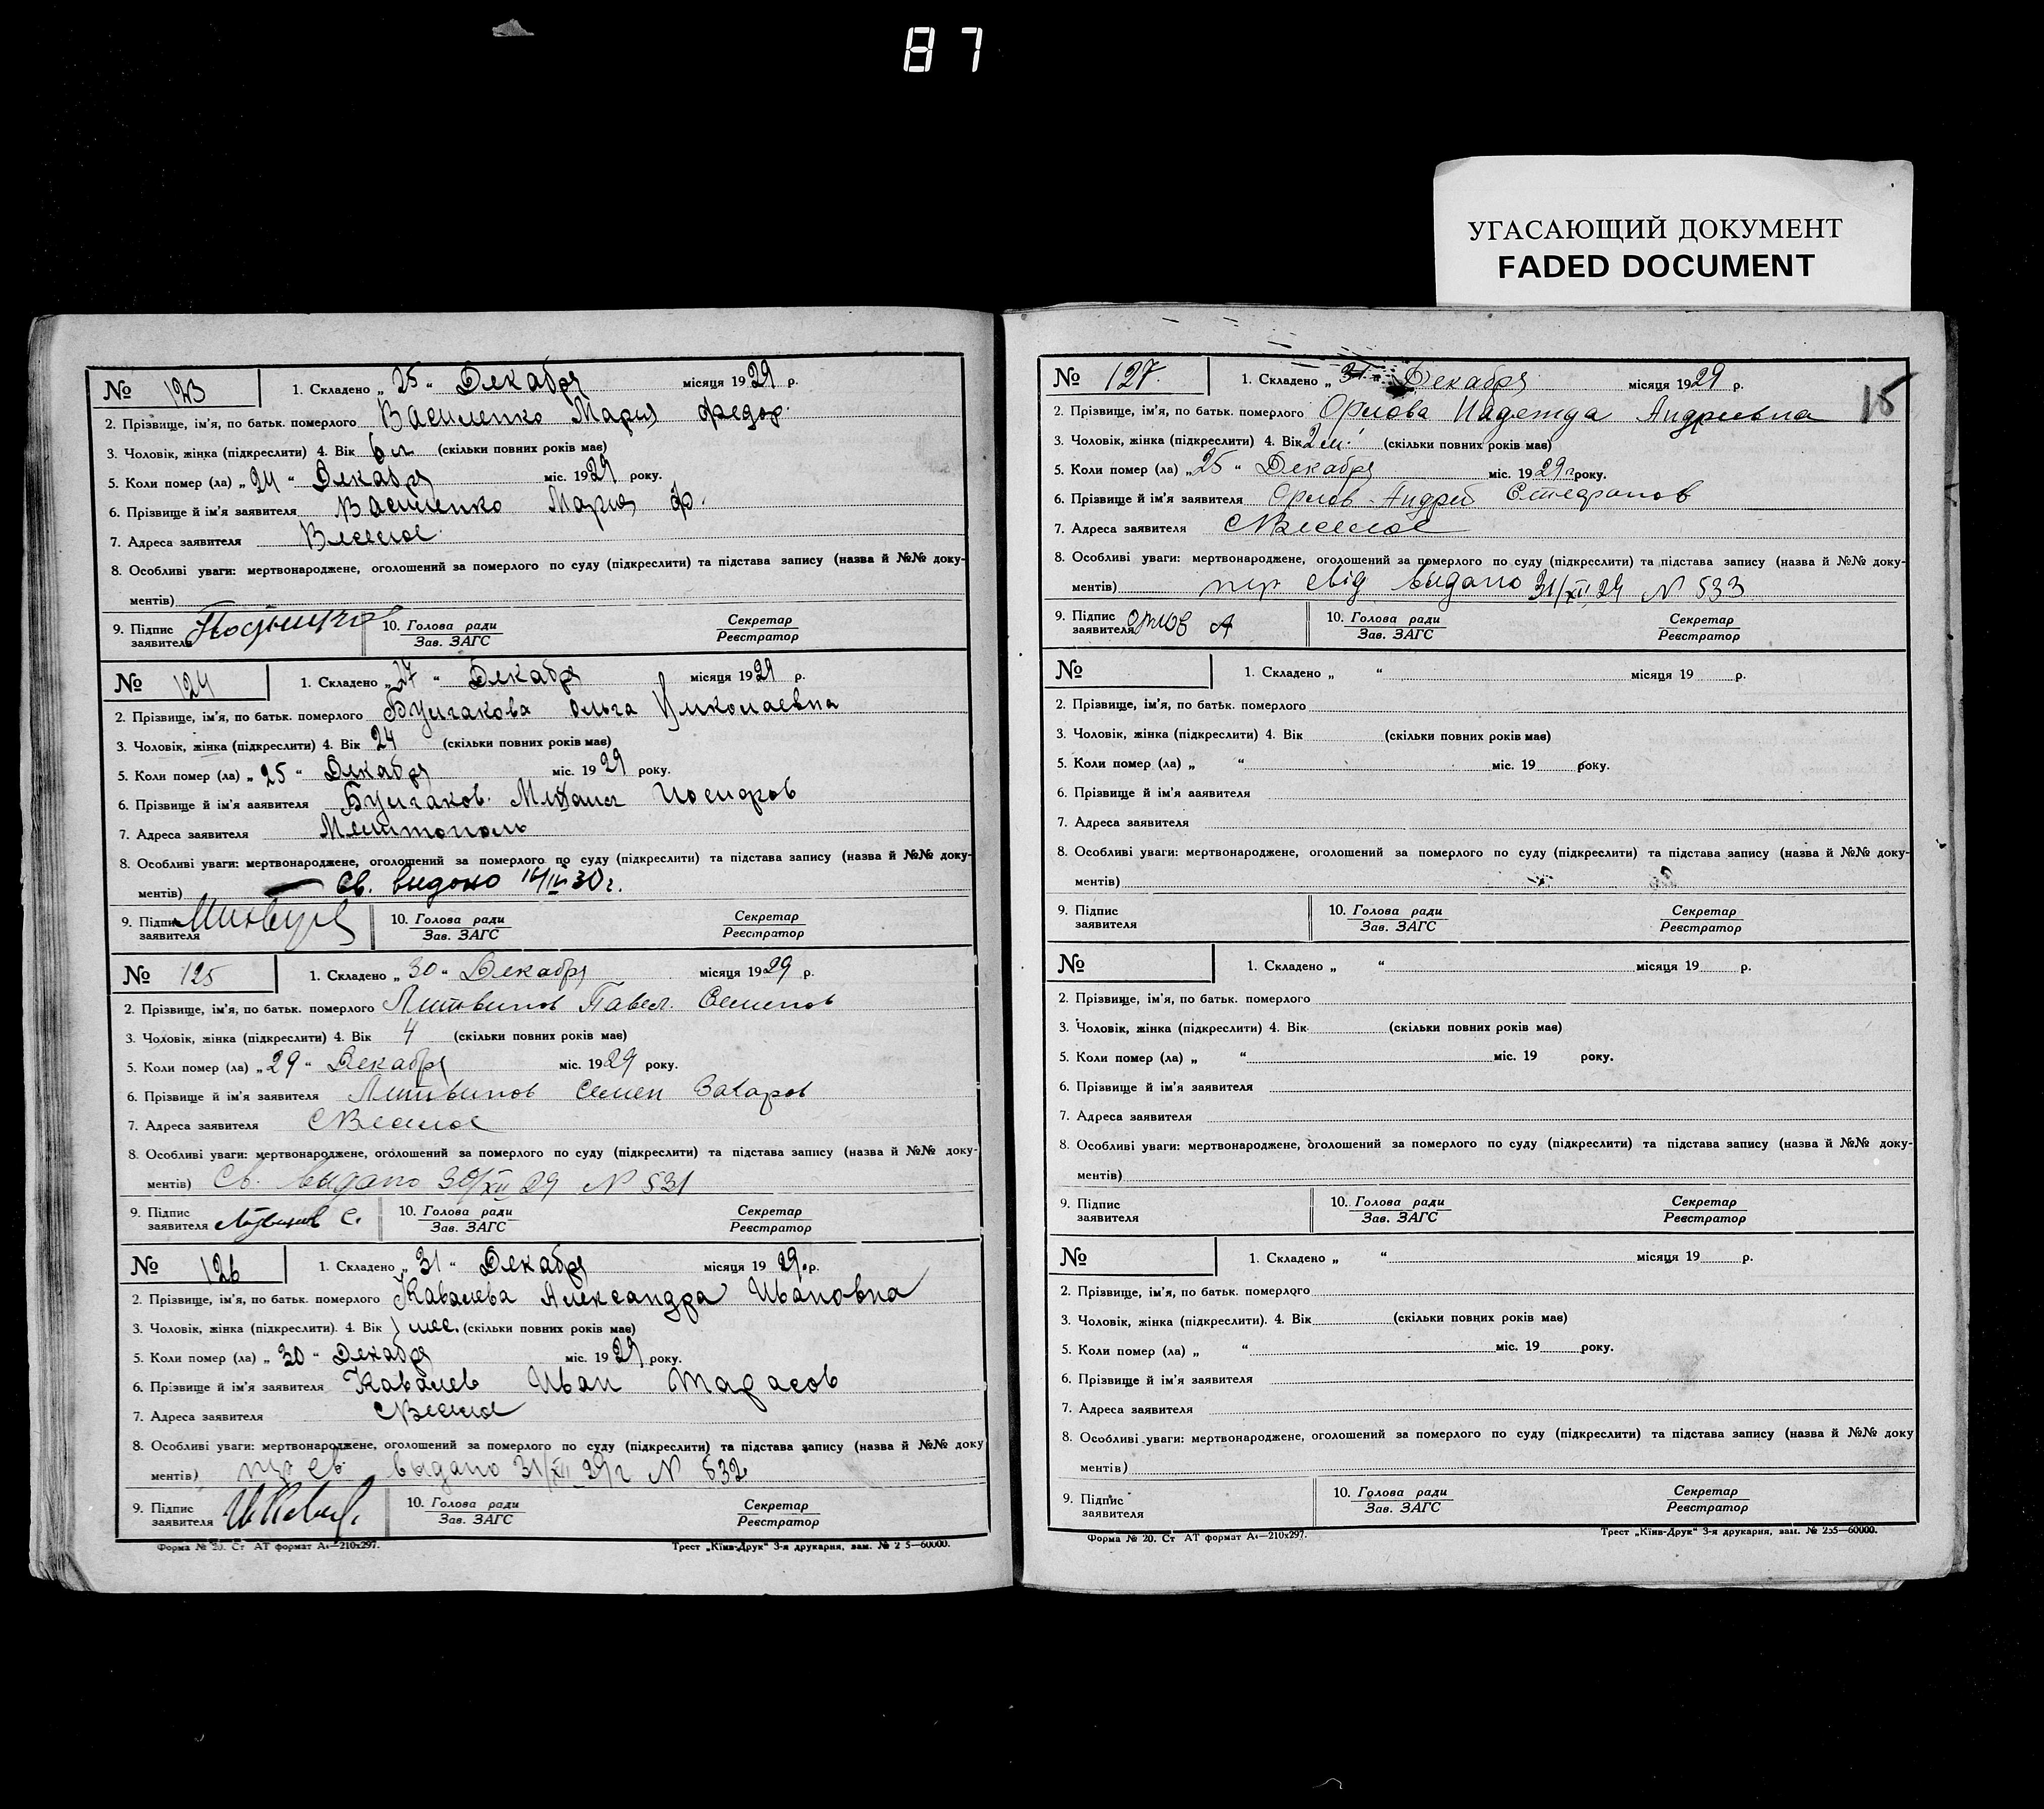 87
УГАСАЮЩИЙ ДОКУМЕНТ
FADED DOCUMENT
№ 123 1. Складено „25“ Декабря місяця 1929 р.
2. Прізвище, ім'я, по батьк. померлого Василенко Мария Федор.
3. Чоловік, жінка (підкреслити) 4. Вік 6 л (скільки повних років має)
5. Коли помер (ла) „24“ Декабря міс. 1929 року.
6. Прізвище й ім'я заявителя Василенко Мария Ф.
7. Адреса заявителя Веселое
8. Особливі уваги: мертвонароджене, оголошений за померлого по суду (підкреслити) та підстава запису (назва й №№ доку-
ментів)
9. Підпис заявителя 10. Голова ради Зав. ЗАГС Секретар Реєстратор
№ 124 1. Складено „27“ Декабря місяця 1929 р.
2. Прізвище, ім'я, по батьк. померлого Булгакова Ольга Николаевна
3. Чоловік, жінка (підкреслити) 4. Вік 24 (скільки повних років має)
5. Коли помер (ла) „25“ Декабря міс. 1929 року.
6. Прізвище й ім'я заявителя Булгаков Михаил Иосифов
7. Адреса заявителя Мелитополь
8. Особливі уваги: мертвонароджене, оголошений за померлого по суду (підкреслити) та підстава запису (назва й №№ доку-
ментів) Св. выдано 16/IV 30 г.
9. Підпис заявителя 10. Голова ради Зав. ЗАГС Секретар Реєстратор
№ 125 1. Складено „30“ Декабря місяця 1929 р.
2. Прізвище, ім'я, по батьк. померлого Литвинов Павел Семенов
3. Чоловік, жінка (підкреслити) 4. Вік 4 (скільки повних років має)
5. Коли помер (ла) „29“ Декабря міс. 1929 року.
6. Прізвище й ім'я заявителя Литвинов Семен Захаров
7. Адреса заявителя С Веселое
8. Особливі уваги: мертвонароджене, оголошений за померлого по суду (підкреслити) та підстава запису (назва й №№ доку-
ментів) Св. выдано 30/XII 29 N 531
9. Підпис заявителя Литвинов С. 10. Голова ради Зав. ЗАГС Секретар Реєстратор
№ 126 1. Складено „31“ Декабря місяця 1929 р.
2. Прізвище, ім'я, по батьк. померлого Кавалева Александра Ивановна
3. Чоловік, жінка (підкреслити). 4. Вік 1 мес. (скільки повних років має)
5. Коли помер (ла) „30“ Декабря міс. 1929 року.
6. Прізвище й ім'я заявителя Кавалев Иван Тарасов
7. Адреса заявителя С Веселое
8. Особливі уваги: мертвонароджене, оголошений за померлого по суду (підкреслити) та підстава запису (назва й №№ доку
ментів) св. выдано 31/XII 29 г N 532
9. Підпис заявителя 10. Голова ради Зав. ЗАГС Секретар Реєстратор
Форма № 20. Ст АТ формат А4—210х297. Трест „Київ-Друк“ 3-я друкарня, зам. № 2 5—60000.
15
№ 127. 1. Складено „31“ Декабря місяця 1929 р.
2. Прізвище, ім'я, по батьк. померлого Орлова Надежда Андреевна
3. Чоловік, жінка (підкреслити) 4. Вік 2 м. (скільки повних років має)
5. Коли помер (ла) „25“ Декабря міс. 1929 г року.
6. Прізвище й ім'я заявителя Орлов Андрей Стефанов
7. Адреса заявителя С Веселое
8. Особливі уваги: мертвонароджене, оголошений за померлого по суду (підкреслити) та підстава запису (назва й №№ доку-
ментів) свід выдано 31/XII 29 N 533
9. Підпис заявителя 10. Голова ради Зав. ЗАГС Секретар Реєстратор
№ 1. Складено „ “ місяця 19 р.
2. Прізвище, ім'я, по батьк. померлого
3. Чоловік, жінка (підкреслити) 4. Вік (скільки повних років має)
5. Коли помер (ла) „ “ міс. 19 року.
6. Прізвище й ім'я заявителя
7. Адреса заявителя
8. Особливі уваги: мертвонароджене, оголошений за померлого по суду (підкреслити) та підстава запису (назва й №№ доку-
ментів)
9. Підпис заявителя 10. Голова ради Зав. ЗАГС Секретар Реєстратор
№ 1. Складено „ “ місяця 19 р.
2. Прізвище, ім'я, по батьк. померлого
3. Чоловік, жінка (підкреслити) 4. Вік (скільки повних років має)
5. Коли помер (ла) „ “ міс. 19 року.
6. Прізвище й ім'я заявителя
7. Адреса заявителя
8. Особливі уваги: мертвонароджене, оголошений за померлого по суду (підкреслити) та підстава запису (назва й №№ доку-
ментів)
9. Підпис заявителя 10. Голова ради Зав. ЗАГС Секретар Реєстратор
№ 1. Складено „ “ місяця 19 р.
2. Прізвище, ім'я, по батьк. померлого
3. Чоловік, жінка (підкреслити). 4. Вік (скільки повних років має)
5. Коли помер (ла) „ “ міс. 19 року.
6. Прізвище й ім'я заявителя
7. Адреса заявителя
8. Особливі уваги: мертвонароджене, оголошений за померлого по суду (підкреслити) та підстава запису (назва й №№ доку
ментів)
9. Підпис заявителя 10. Голова ради Зав. ЗАГС Секретар Реєстратор
Форма № 20. Ст АТ формат А4—210х297. Трест „Київ-Друк“ 3-я друкарня, зам. № 255—60000.